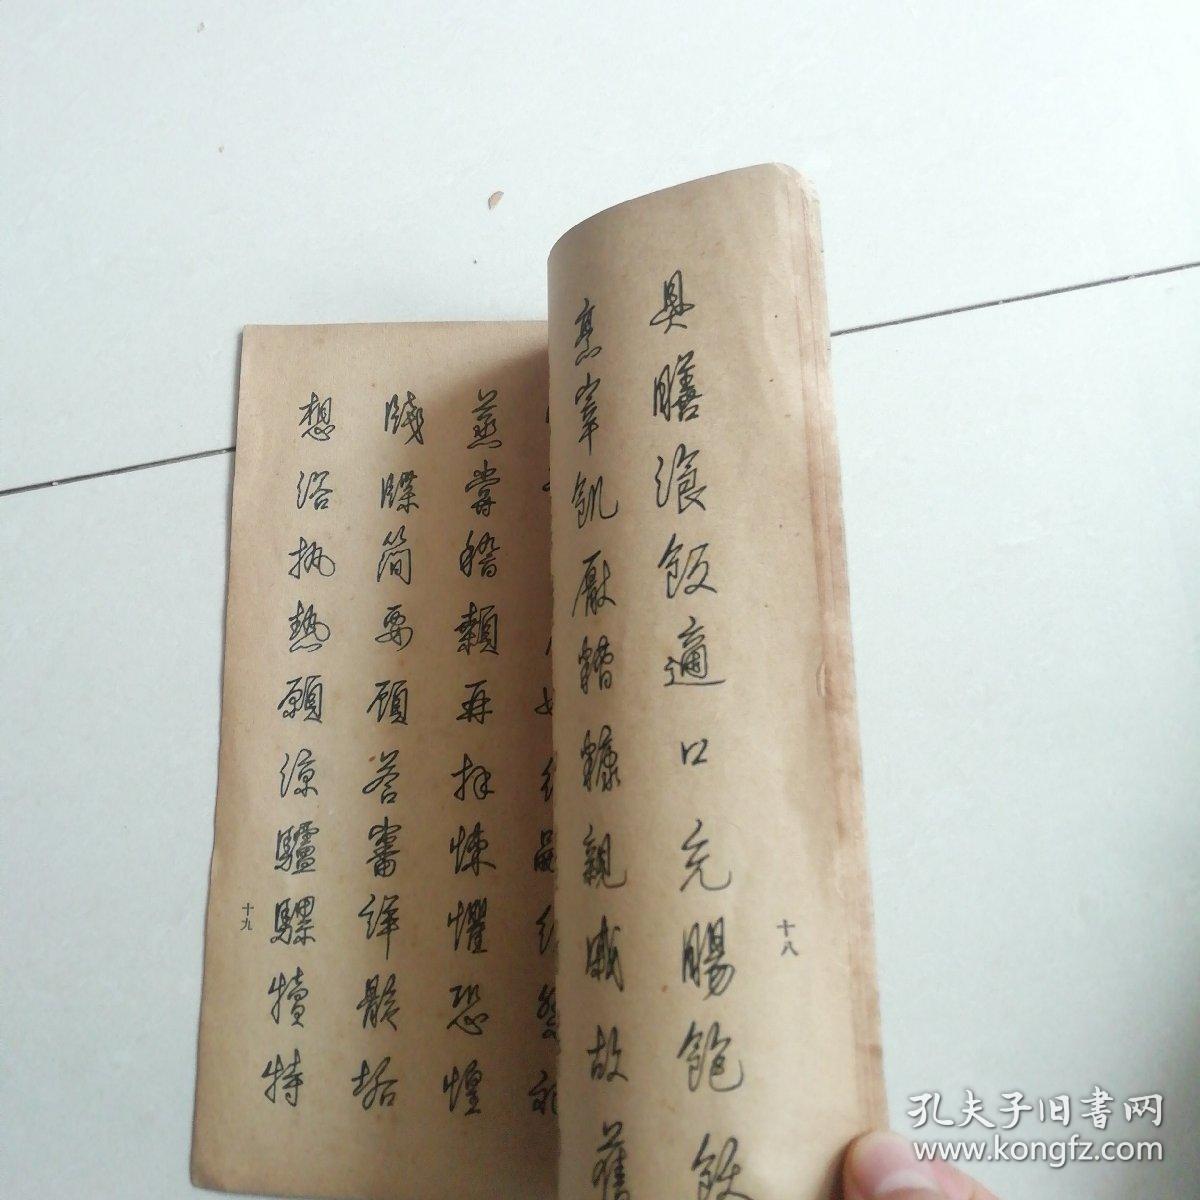 具膳湌飯適口充腸飽飫
烹宰飢厭糟糠親戚故舊
十八
蒸嘗稽顙再拜悚懼恐惶
牋牒簡要顧答審詳骸垢
想浴執熱願涼驢騾犢特
十九
孔夫子旧书网
www.kongfz.com